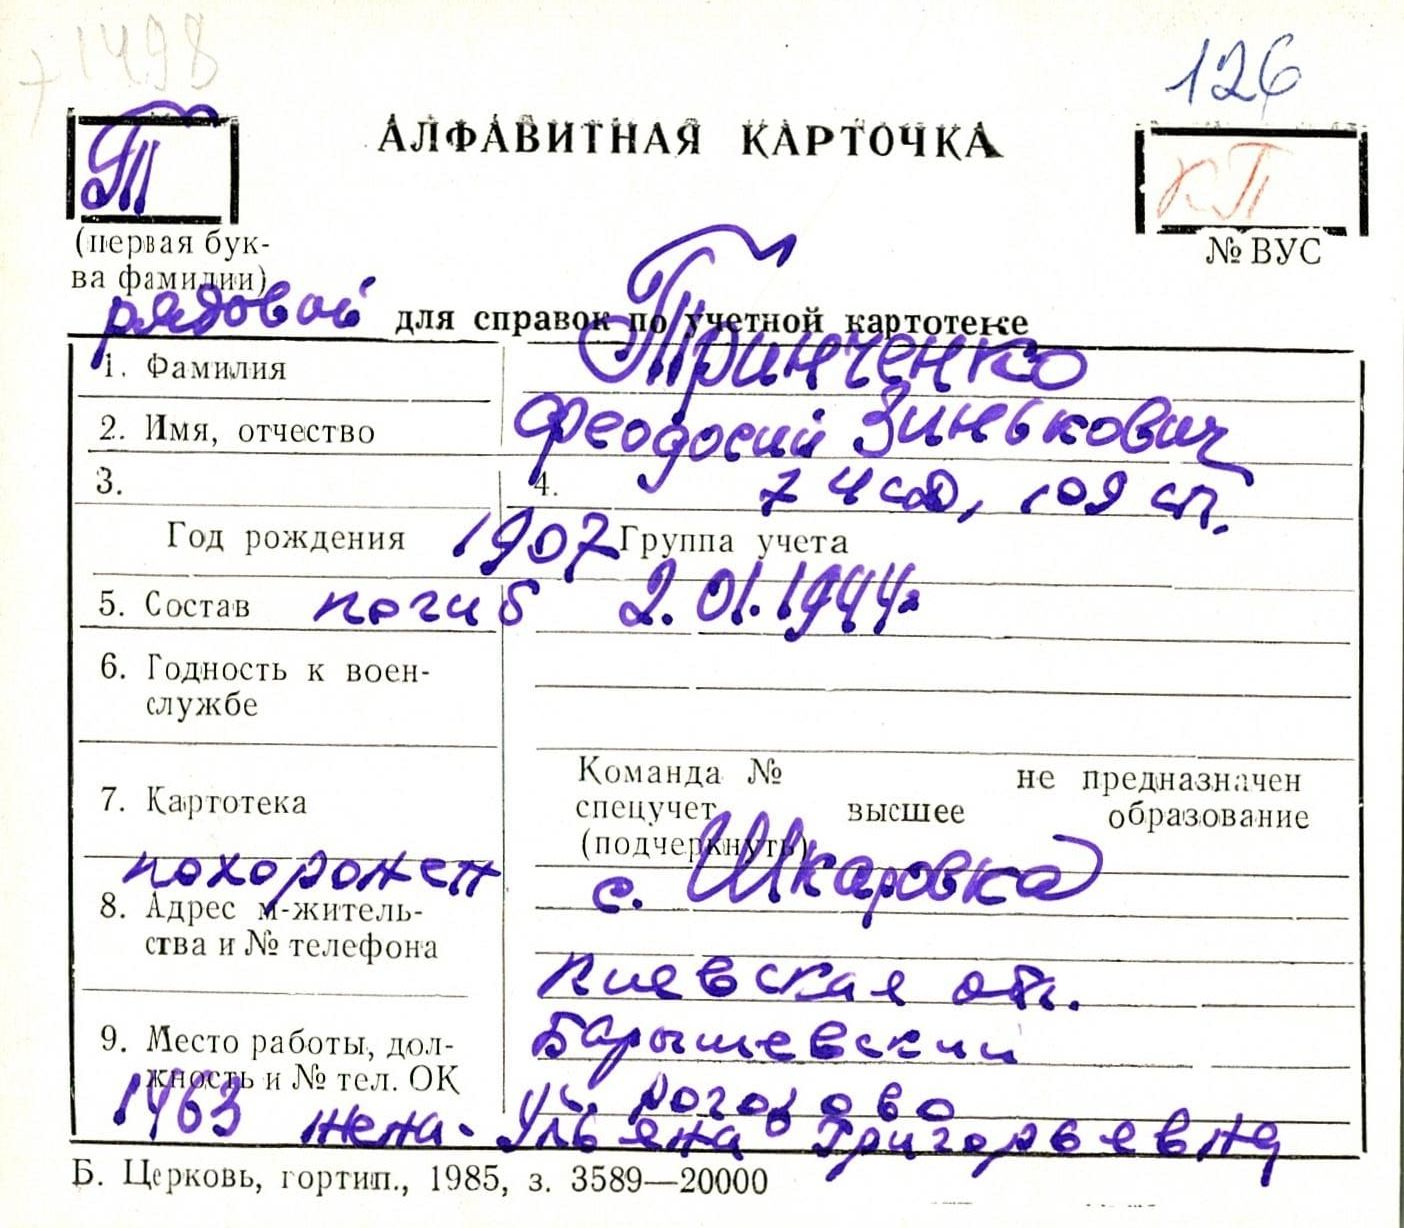 +1498
126
Т
АЛФАВИТНАЯ КАРТОЧКА
КП
(первая бук-
ва фамилии)
№ ВУС
рядовой для справок по учетной картотеке
1. Фамилия Тринченко
2. Имя, отчество Феодосий Зинькович
3. 4. 74 сд, 109 сп.
Год рождения 1907 Группа учета
5. Состав погиб 2.01.1944г
6. Годность к воен-
службе
Команда № не предназначен
7. Картотека спецучет высшее образование
(подчеркнуть)
похоронен с. Шкаровка
8. Адрес м-житель-
ства и № телефона
Киевская обл.
9. Место работы, дол-
жность и № тел. ОК
Барышевский
с. Рогозово
1463 жена - Ульяна Григорьевна
Б. Церковь, гортип., 1985, з. 3589—20000